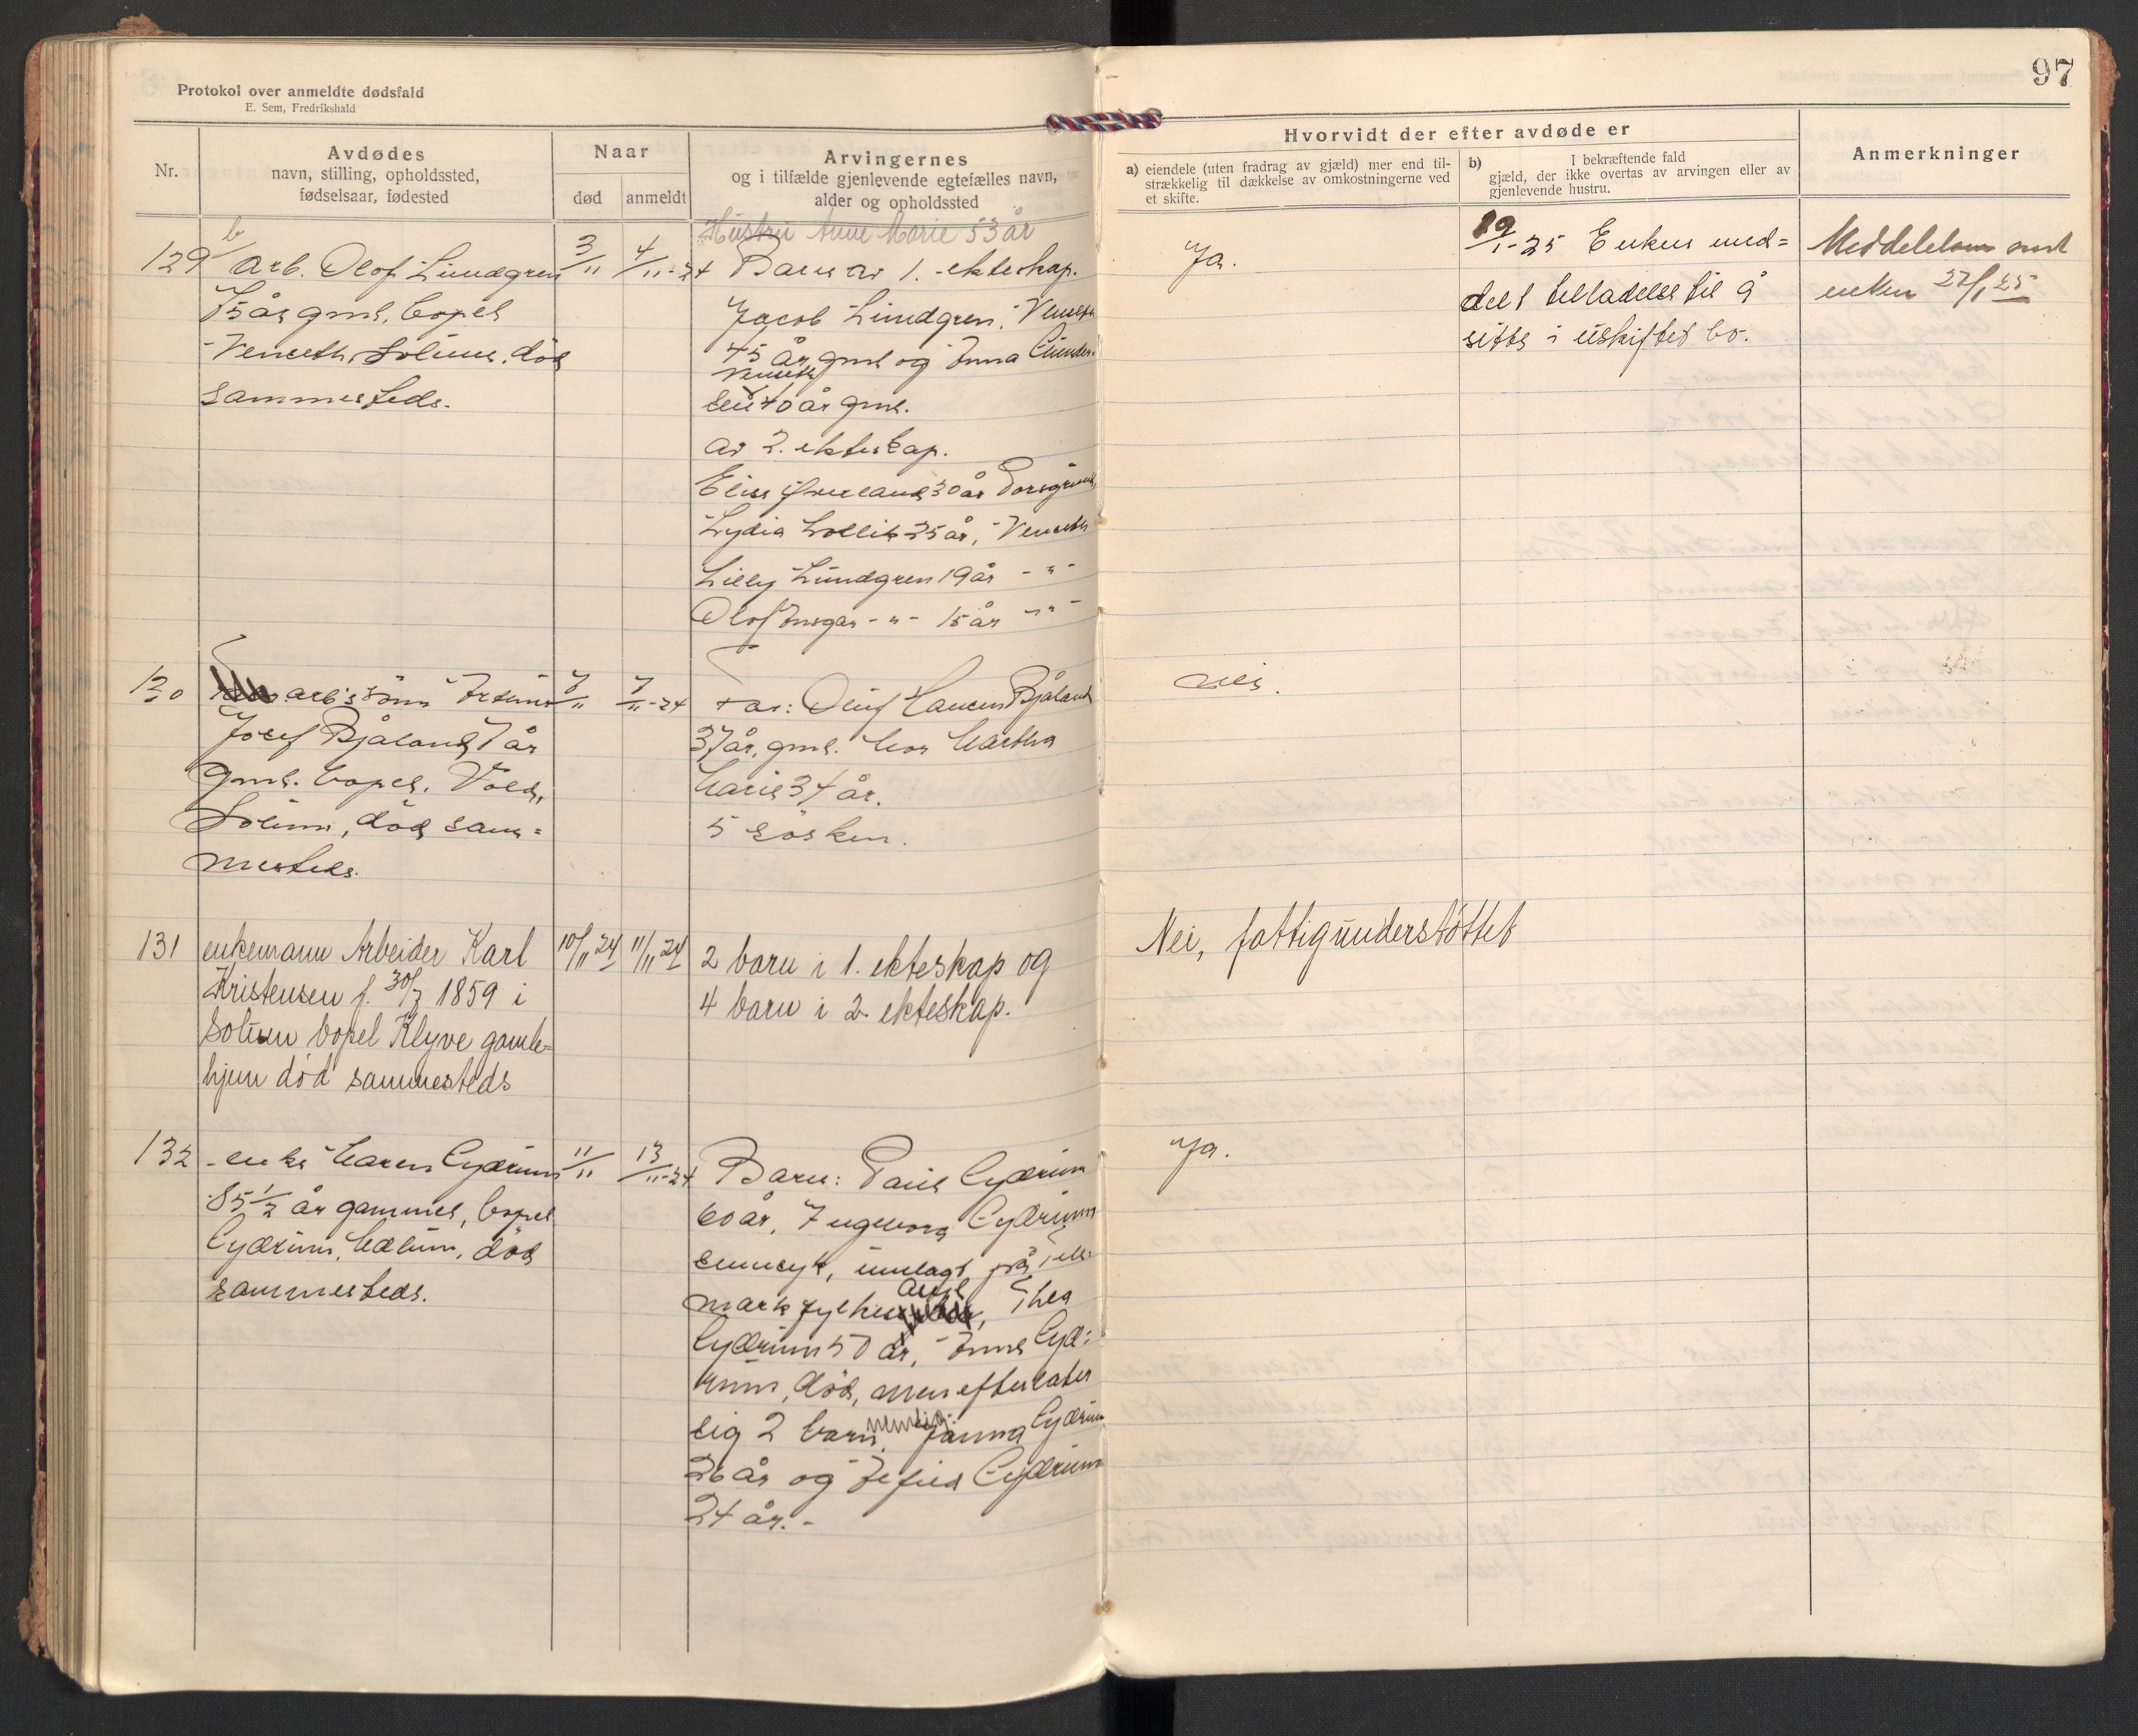 Protokol over anmeldte dødsfald
E. Sem, Fredrikshald
97
Nr.
Avdødes
navn, stilling, opholdssted,
fødselsaar, fødested
Naar
død
anmeldt
Arvingernes
og i tilfælde gjenlevende egtefælles navn,
alder og opholdssted
Hvorvidt der efter avdøde er
a) eiendele (uten fradrag av gjæld) mer end til-
strækkelig til dækkelse av omkostningerne ved
et skifte.
b) I bekræftende fald
gjæld, der ikke overtas av arvingen eller av
gjenlevende hustru.
Anmerkninger
129
Arb. Olof Lundgren
75 år gml. bopel
Venseth, Solum, død
sammesteds.
3/11
4/11-24
Hustru Anne Marie 53 år
Barn av 1. ekteskap.
Jacob Lundgren, Venseth
45 år gml og Anna
Venseth
40 år gml.
av 2. ekteskap.
Elise 30 år Porsgrund
Lydia 25 år, Venseth
Lilly Lundgren 19 år - " -
Olof - " - 15 år - " -
Ja.
19/1-25 Enken med=
delt tilladelse til å
sitte i uskiftet bo.
Meddelelse sendt
enken 22/1 25
130
arb.s sønn
Josef Bjåland 7 år
gml. bopel. Vold,
Solum, død sam=
mesteds.
7/11
7/11-24
Far: Oluf Hansen Bjåland
37 år, gml. Mor Martha
Marie 34 år.
5 søsken.
nei.
131
enkemann Arbeider Karl
Kristensen f. 30/7 1859 i
Solum bopel Klyve gamle=
hjem død sammesteds
10/11 24
11/11 24
2 barn i 1. ekteskap og
4 barn i 2. ekteskap.
Nei, fattigunderstøttet
132
enke Maren Gjærum
85 1/2 år gammel, bopel
Gjærum, Mælum, død
sammesteds.
11/11
13/11-24
Barn: Paul Gjærum
60 år, Ingeborg Gjærum
sinnsyk, innlagt på Tele=
mark fylkes asyl, Thea
Gjærum 50 år, Gjæ=
rum, død, men efterlater
sig 2 barn, nemlig: Gjærum
26 år og Gjærum
24 år. -
Ja.